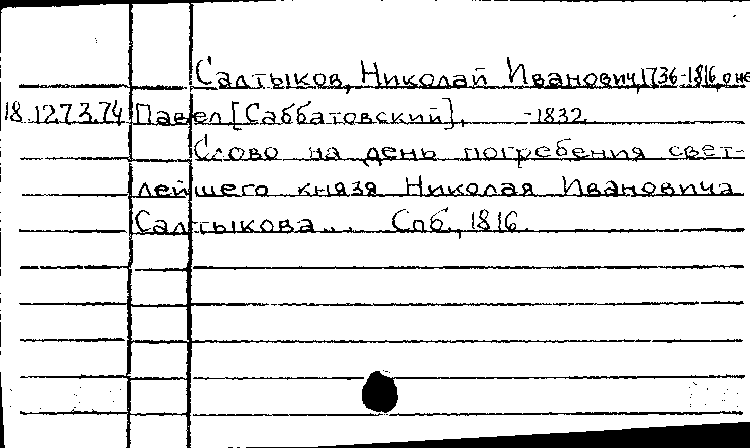 Салтыков, Николай Иванович, 1736-1816, о не
18.127.3.74 Павел [Саббатовский], -1832.
Слово на день погребения свет-
лейшего князя Николая Ивановича
Салтыкова... Спб., 1816.